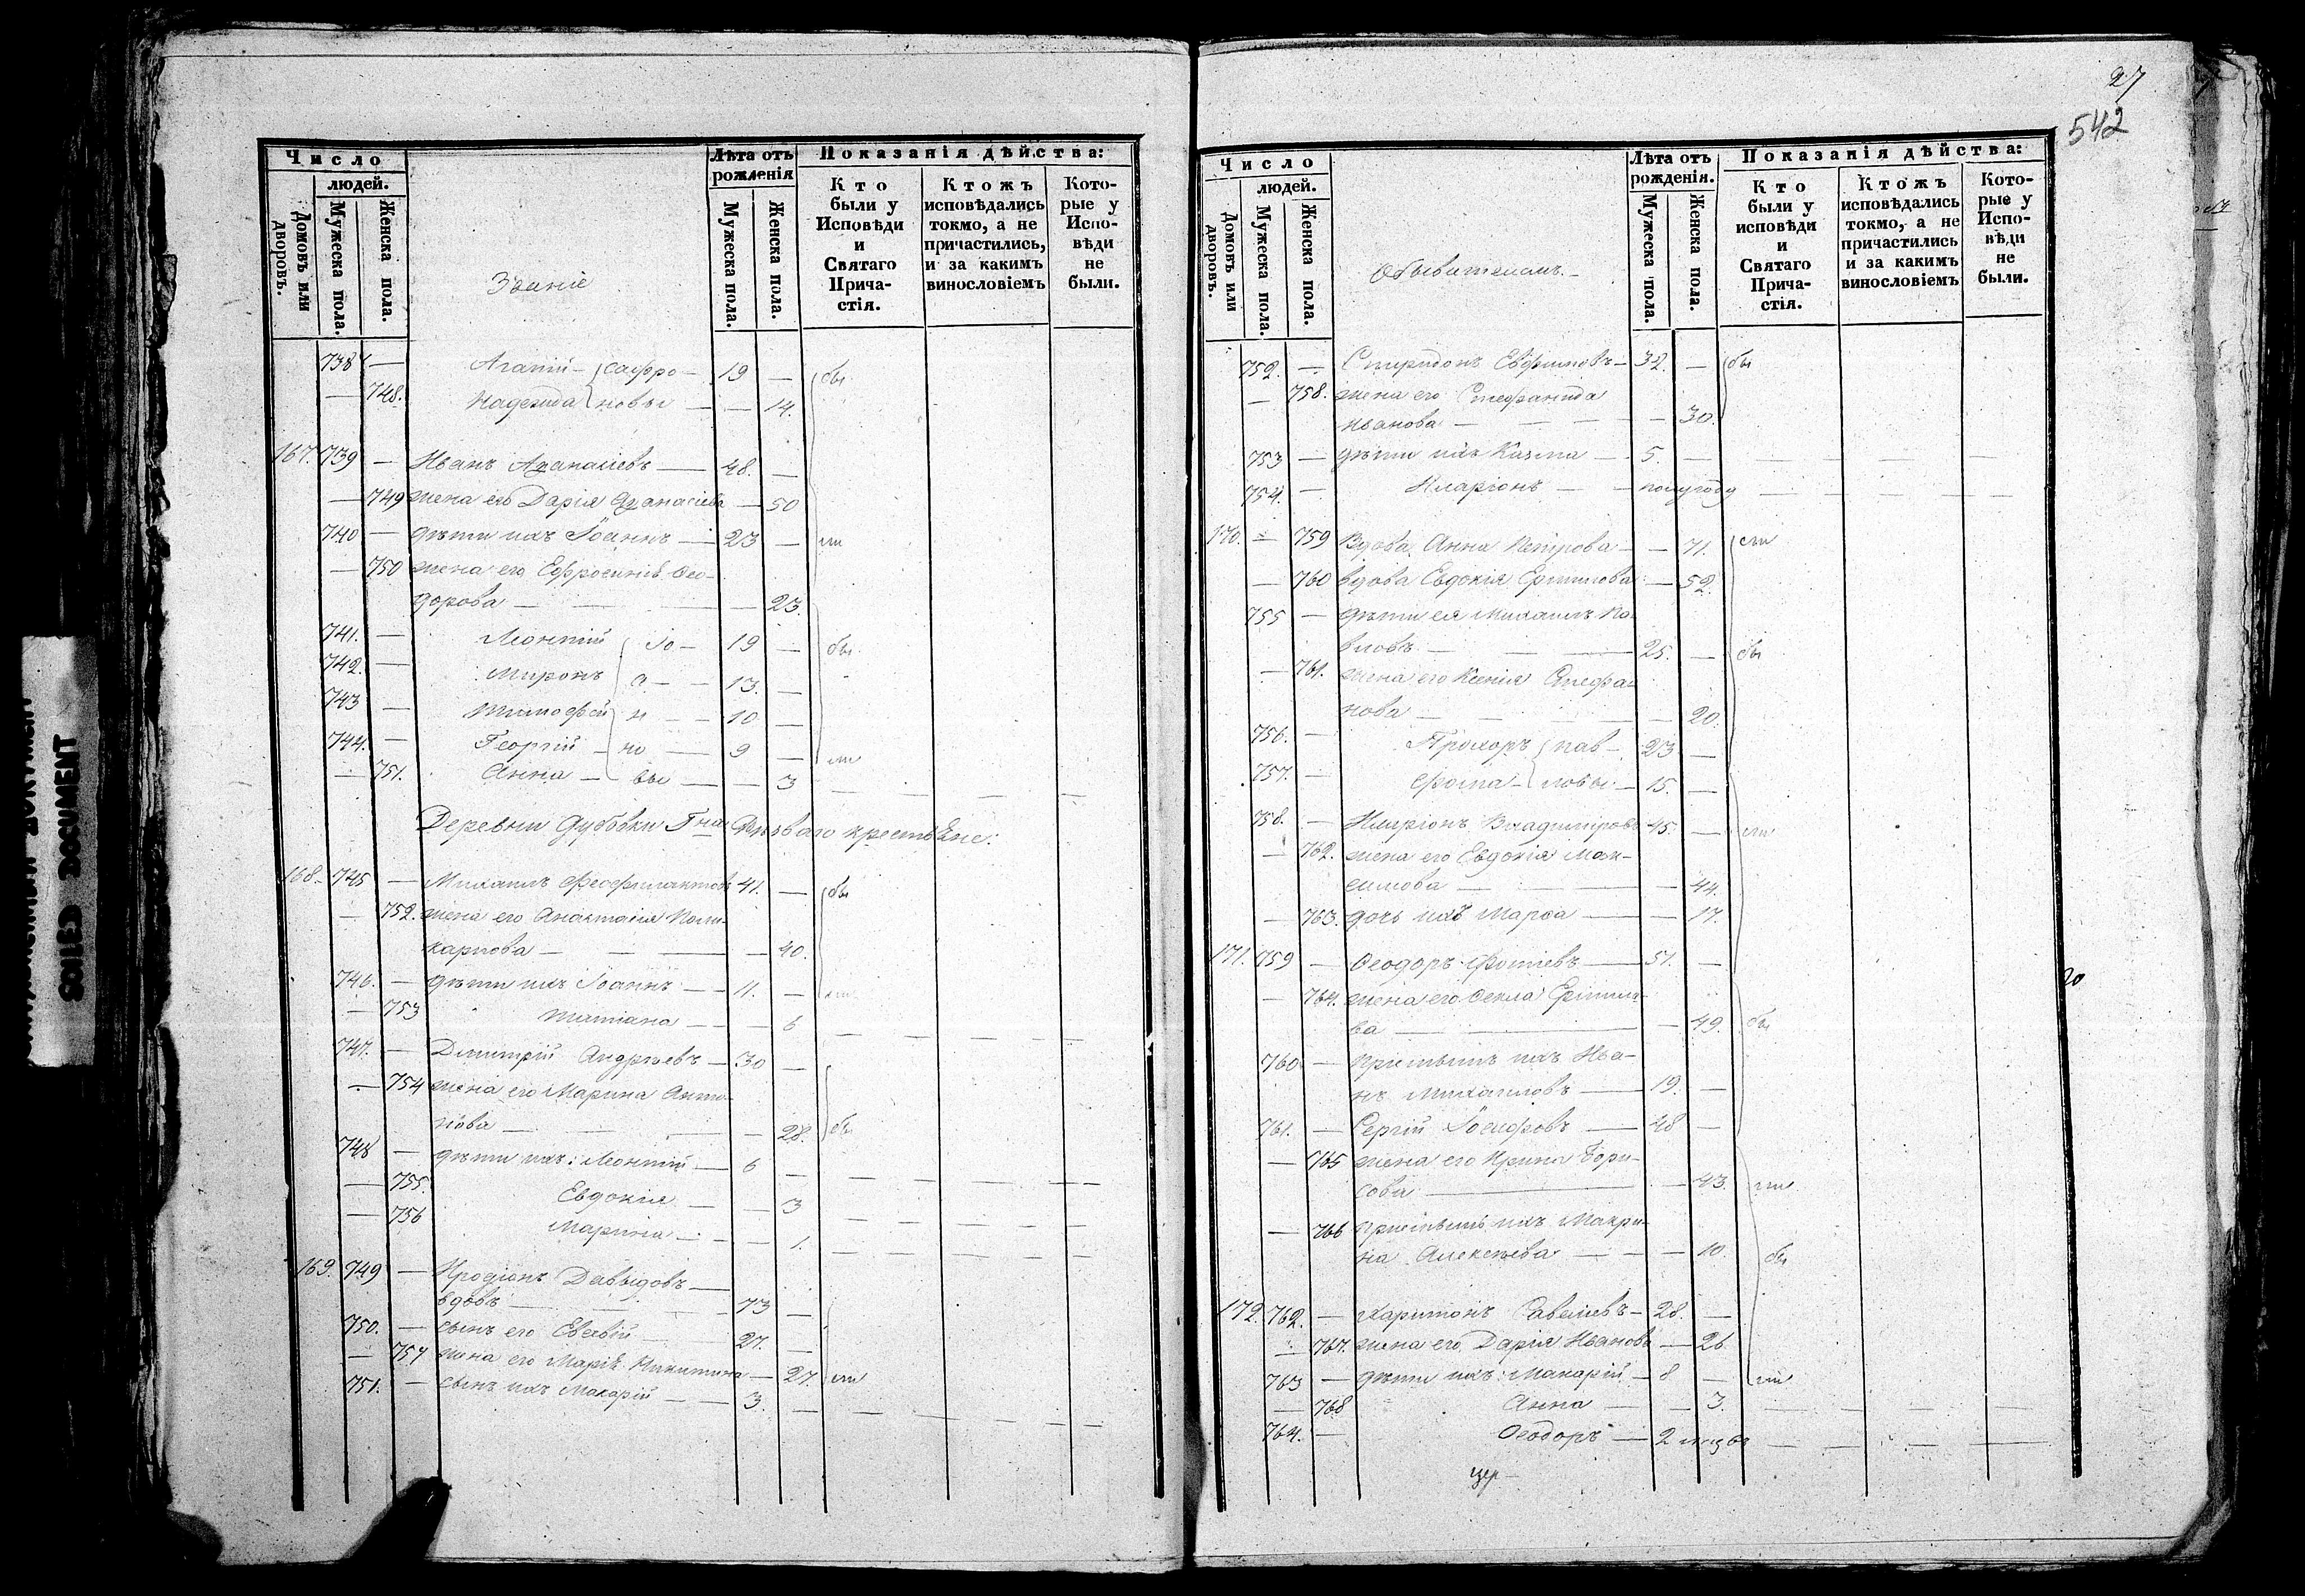 Число
людей.
Домовъ или дворовъ.
Мужеска пола.
Женска пола.
Званіе
Лѣта отъ рожденія
Мужеска пола.
Женска пола.
Показанія дѣйства:
Кто были у Исповѣди и Святаго Прича-стія.
Ктожъ исповѣдались токмо, а не причастились, и за какимъ винословіемъ
Кото-рые у Испо-вѣди не были.
738 — Агапій — { сафро — 19 — бы
— 748. Надежда { новы — — 14.
167. 739 — Иванъ Аѳанасіевъ — 48. —
— 749 жена его Дарія Аѳанасіева — 50
740 — дѣти ихъ Іоаннъ — 23 — ли
— 750 жена его Ефросинія Ѳео-
дорова — — — 23.
741. — Леонтій { Іо — 19 — бы
742. — Миронъ { а — — 13. —
743 — Тимофей { н — — 10 —
744. — Георгій — { но — 9 — ли
— 751. Анна — { вы — — 3 — — — —
Деревни Дубовки Гна крестьяне:
168. 745 — Михаилъ Феофилактовъ 41. — бы
— 752. жена его Анастасія Поли-
карпова — — — — 40.
746. — дѣти ихъ Іоаннъ — — 11. — ли
— 753 Татіана — — — 6 — — — —
747. — Димитрій Андреевъ — 30 —
— 754 жена его Марина Анто-
нова — — — 28. бы
748 — дѣти ихъ: Леонтій — 6 — — — —
— 755. Евдокія — — 3 — — — —
— 756 Марина — — — 1. — — — —
169. 749 — Иродіонъ Давыдовъ —
вдовъ — — 73 —
750. — сынъ его Евсевій — 27. —
— 757 жена его Марія Никитина — 27. ли
751. — сынъ ихъ Макарій — — 3. — — — — —
27
542
Число
людей.
Домовъ или дворовъ.
Мужеска пола.
Женска пола.
Обывателямъ.
Лѣта отъ рожденія.
Мужеска пола.
Женска пола.
Показанія дѣйства:
Кто были у исповѣди и Святаго Прича-стія.
Ктожъ исповѣдались токмо, а не причастились и за какимъ винословіемъ
Кото-рые у Испо-вѣди не были.
752. — Спиридонъ Евфимовъ — 32. — бы
— 758. жена его Стефанида
Иванова — — — — — 30.
753 — дѣти ихъ Козма — 5. — — — — —
754. — Иларіонъ — — полугоду — — — —
170. — 759 Вдова Анна Петрова — — 71. ли
— 760 вдова Евдокія Ермилова — 52.
755 — дѣти ея Михаилъ Па-
вловъ — — — 25. — бы
— 761. жена его Ксенія Стефа-
нова — — — — 20.
756. — Прохоръ { пав — 23 —
757. — Фома — { ловы — 15. —
758. — Иларіонъ Владимировъ 45. — ли
— 762. жена его Евдокія Мак-
симова — — — — 44.
— 763. дочь ихъ Марѳа — — 17.
171. 759 — Ѳеодоръ Фотіевъ — 51. —
— 764. жена его Ѳекла Ермило-
ва — — — 49. бы
760 — пріемышъ ихъ Ива-
нъ Михаиловъ — 19. —
761. — Сергій Іосифовъ — 48 —
— 765 жена его Ирина Бори-
сова — — 43. ли
— 766 пріемышъ ихъ Макри-
на Алексѣева — — — 10. бы
172. 762. — Харитонъ Савеліевъ — 28. —
— 767. жена его Дарія Иванова — 26
763 — дѣти ихъ: Макарій — 8 — ли
— 768 Анна — — 3. — — — —
764. — Ѳеодоръ — 2 мцовъ — — — —
цер—
SOILED DOCUMENT